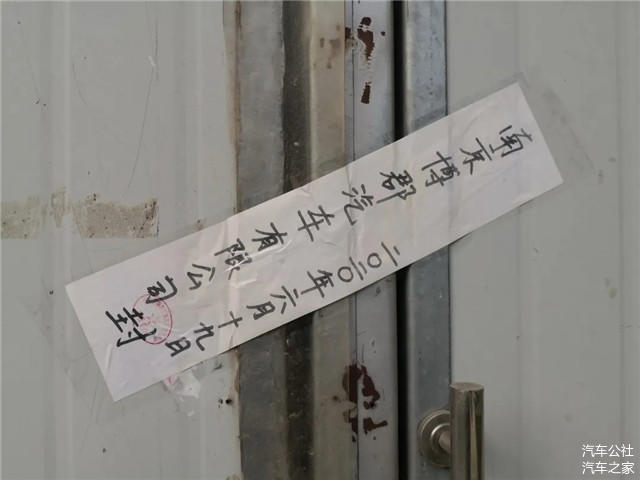 南京博郡汽车有限公司
二〇二〇年六月十九日
封
汽车公社
汽车之家